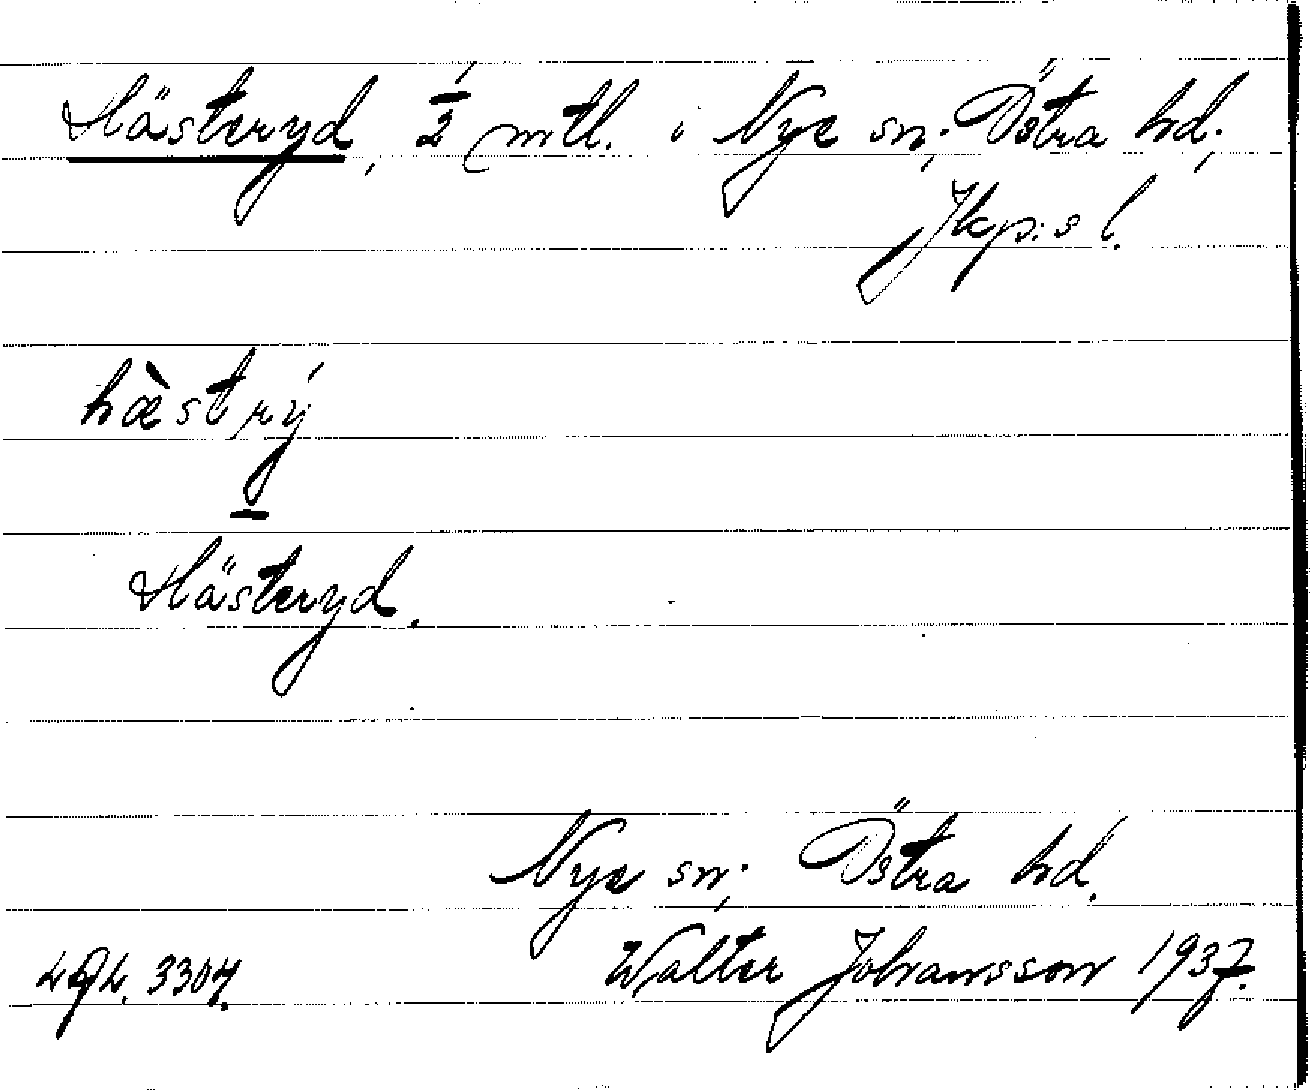 Hästeryd, 1/2 mtl. i Nye sn., Östra hd.,
Jkp:s l.
hæ̀strý
Hästeryd.
Nye sn., Östra hd.
Walter Johansson 1937.
3304.